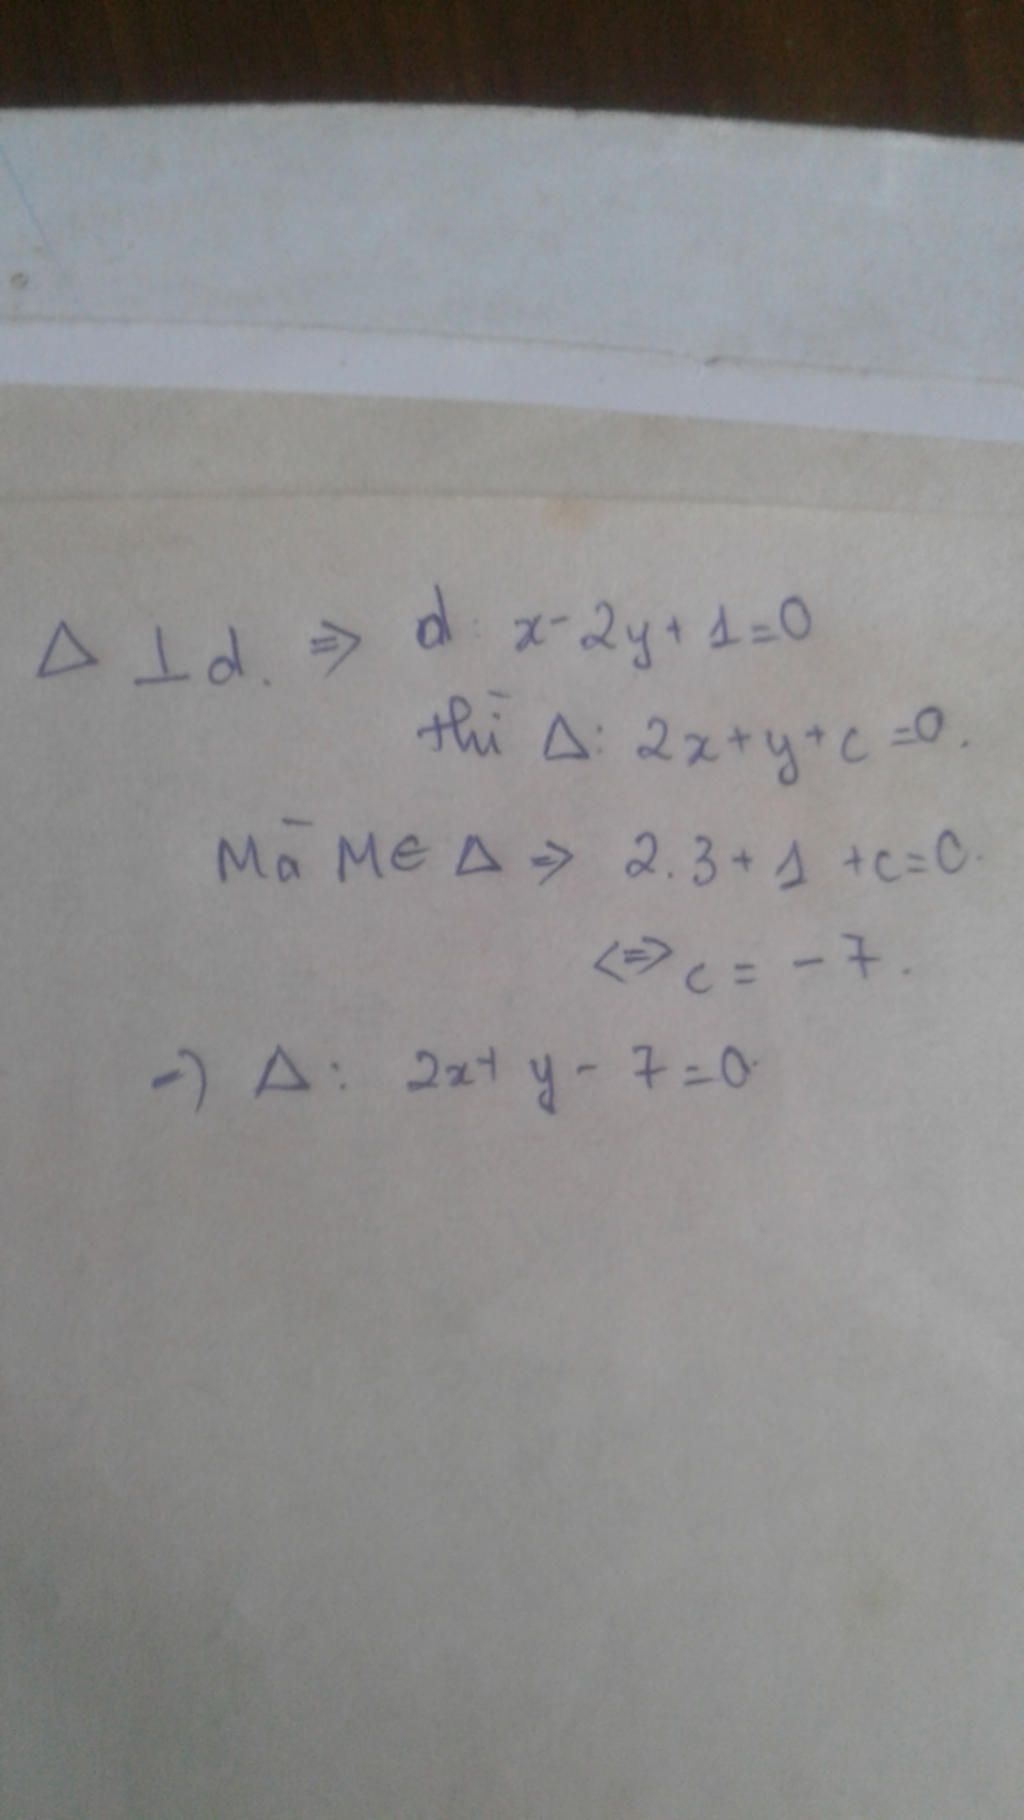 Δ ⊥ d. ⇒ d: x - 2y + 1 = 0
thì Δ: 2x + y + c = 0.
Mà M ∈ Δ ⇒ 2.3 + 1 + c = 0.
⇔ c = -7.
→ Δ: 2x + y - 7 = 0.